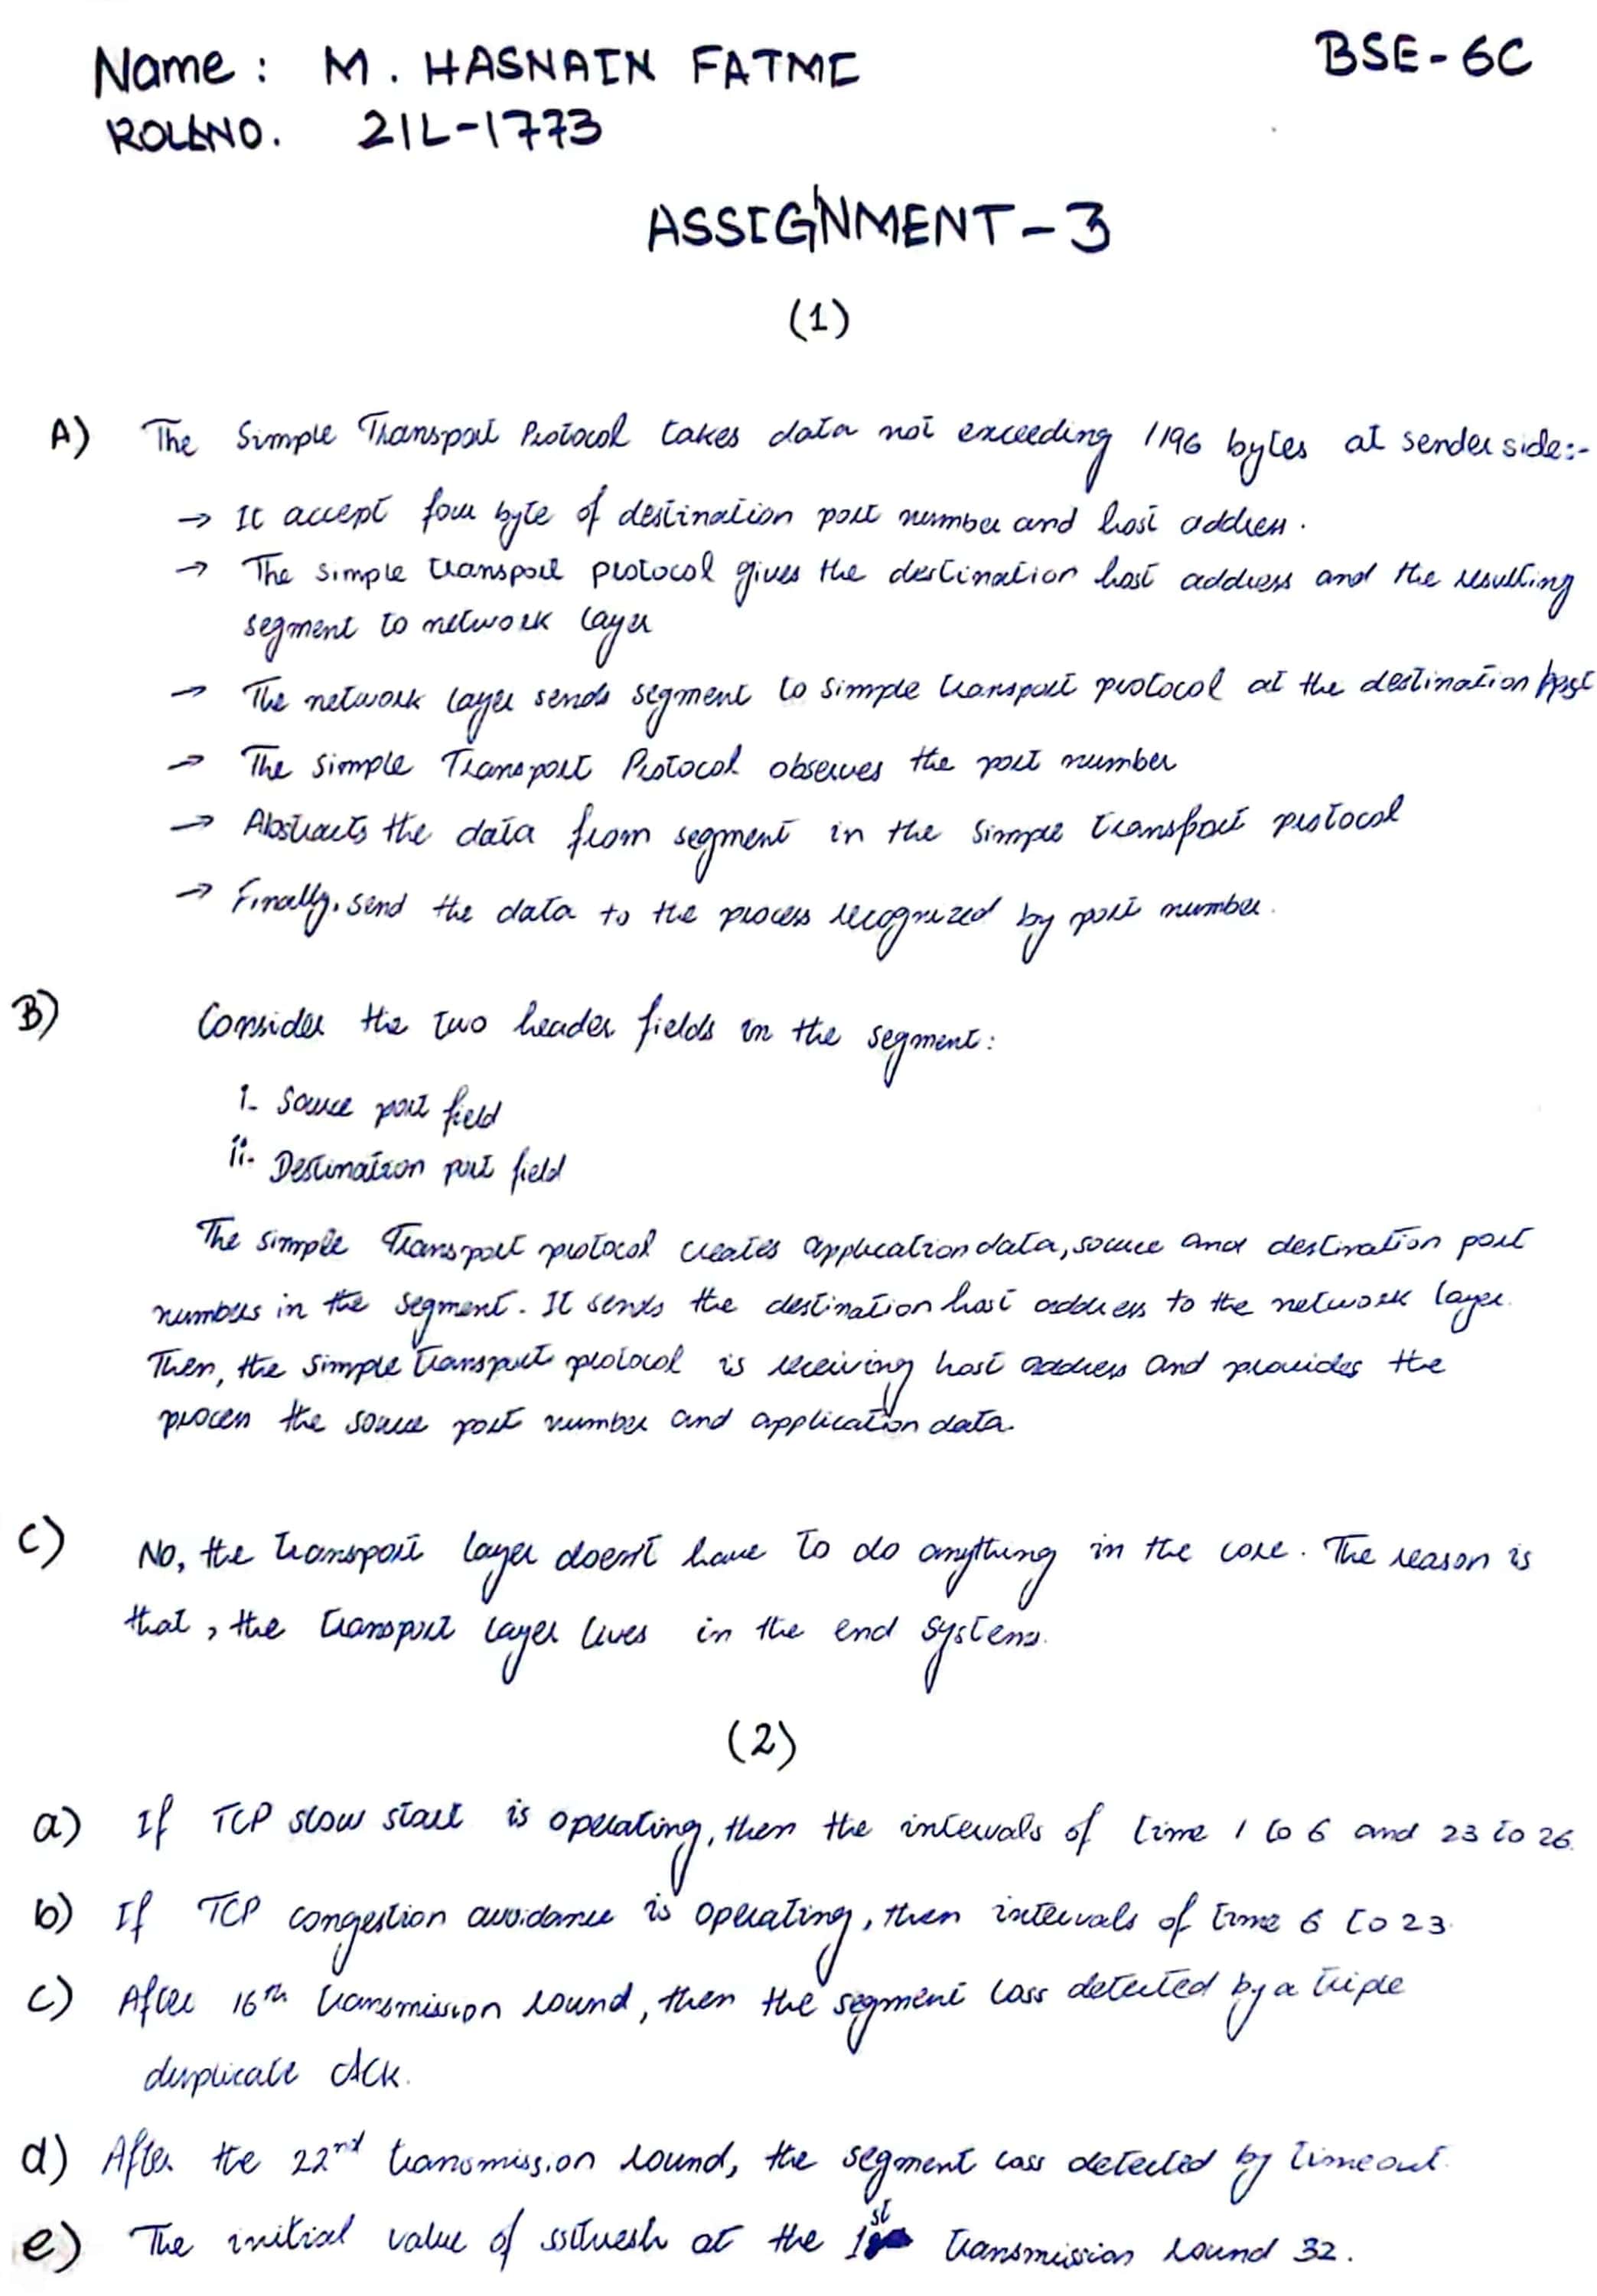 Name : M. HASNAIN FATMI
BSE-6C
ROLLNO. 21L-1773
ASSIGNMENT-3
(1)
A) The Simple Transport Protocol takes data not exceeding 1196 bytes at sender side:-
→ It accept four byte of destination port number and host address.
→ The simple transport protocol gives the destination host address and the resulting
segment to network layer
→ The network layer sends segment to simple transport protocol at the destination host
→ The Simple Transport Protocol observes the port number
→ Abstracts the data from segment in the simple transport protocol
→ Finally, send the data to the process recognized by port number.
B) Consider the two header fields in the segment:
i- Source port field
ii- Destination port field
The simple Transport protocol creates application data, source and destination port
numbers in the segment. It sends the destination host address to the network layer.
Then, the simple transport protocol is receiving host address and provides the
process the source port number and application data.
C) No, the transport layer doesn't have to do anything in the core. The reason is
that, the transport layer lives in the end systems.
(2)
a) If TCP slow start is operating, then the intervals of time 1 to 6 and 23 to 26.
b) If TCP congestion avoidance is operating, then intervals of time 6 to 23.
c) After 16th transmission round, then the segment loss detected by a triple
duplicate ACK.
d) After the 22nd transmission round, the segment loss detected by timeout.
e) The initial value of ssthresh at the 1st transmission round 32.